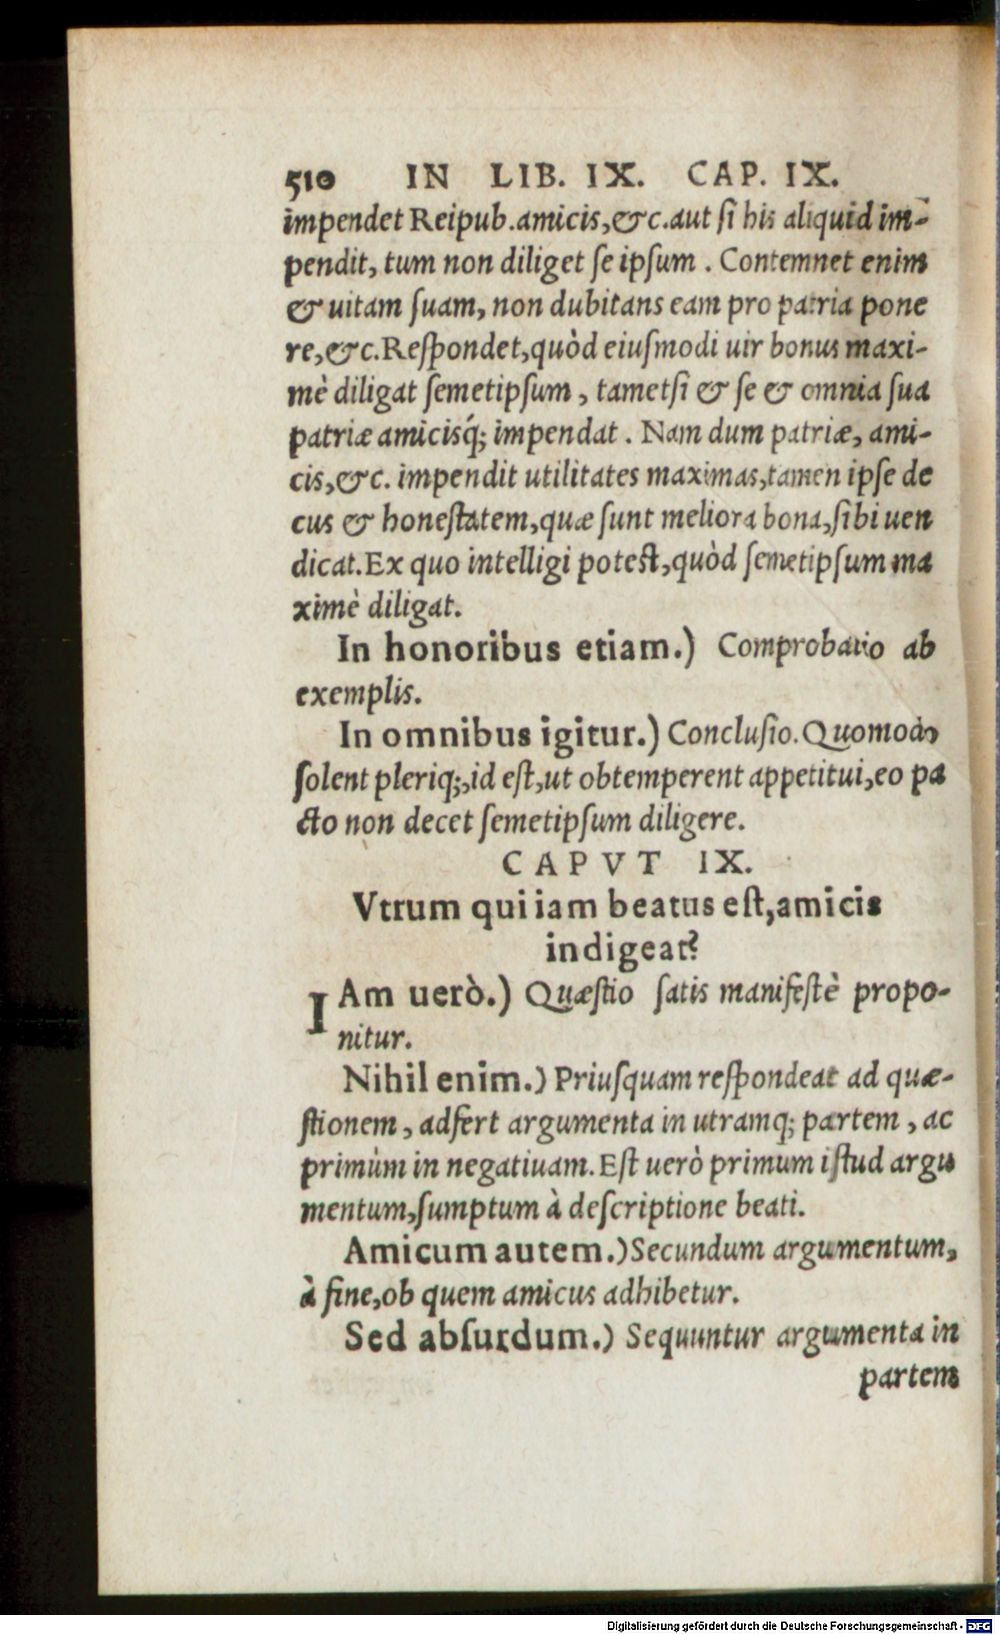 510 IN LIB. IX. CAP. IX.
impendet Reipub. amicis, &c. aut ſi his aliquid im-
pendit, tum non diliget ſe ipſum. Contemnet enim
& uitam ſuam, non dubitans eam pro patria pone
re, &c. Reſpondet, quòd eiuſmodi uir bonus maxi-
mè diligat ſemetipſum, tametſi & ſe & omnia ſua
patriæ amicisq́; impendat. Nam dum patriæ, ami-
cis, &c. impendit utilitates maximas, tamen ipſe de
cus & honeſtatem, quæ ſunt meliora bona, ſibi uen
dicat. Ex quo intelligi poteſt, quòd ſemetipſum ma
ximè diligat.
In honoribus etiam.) Comprobatio ab
exemplis.
In omnibus igitur.) Concluſio. Quomodo
ſolent pleriq;, id eſt, ut obtemperent appetitui, eo pa
cto non decet ſemetipſum diligere.
CAPVT IX.
Vtrum qui iam beatus eſt, amicis
indigeat?
IAm uerò.) Quæſtio ſatis manifeſtè propo-
nitur.
Nihil enim.) Priuſquam reſpondeat ad quæ-
ſtionem, adfert argumenta in utramq; partem, ac
primùm in negatiuam. Eſt uerò primum iſtud argu
mentum, ſumptum à deſcriptione beati.
Amicum autem.) Secundum argumentum,
à fine, ob quem amicus adhibetur.
Sed abſurdum.) Sequuntur argumenta in
partem
Digitalisierung gefördert durch die Deutsche Forschungsgemeinschaft - DFG